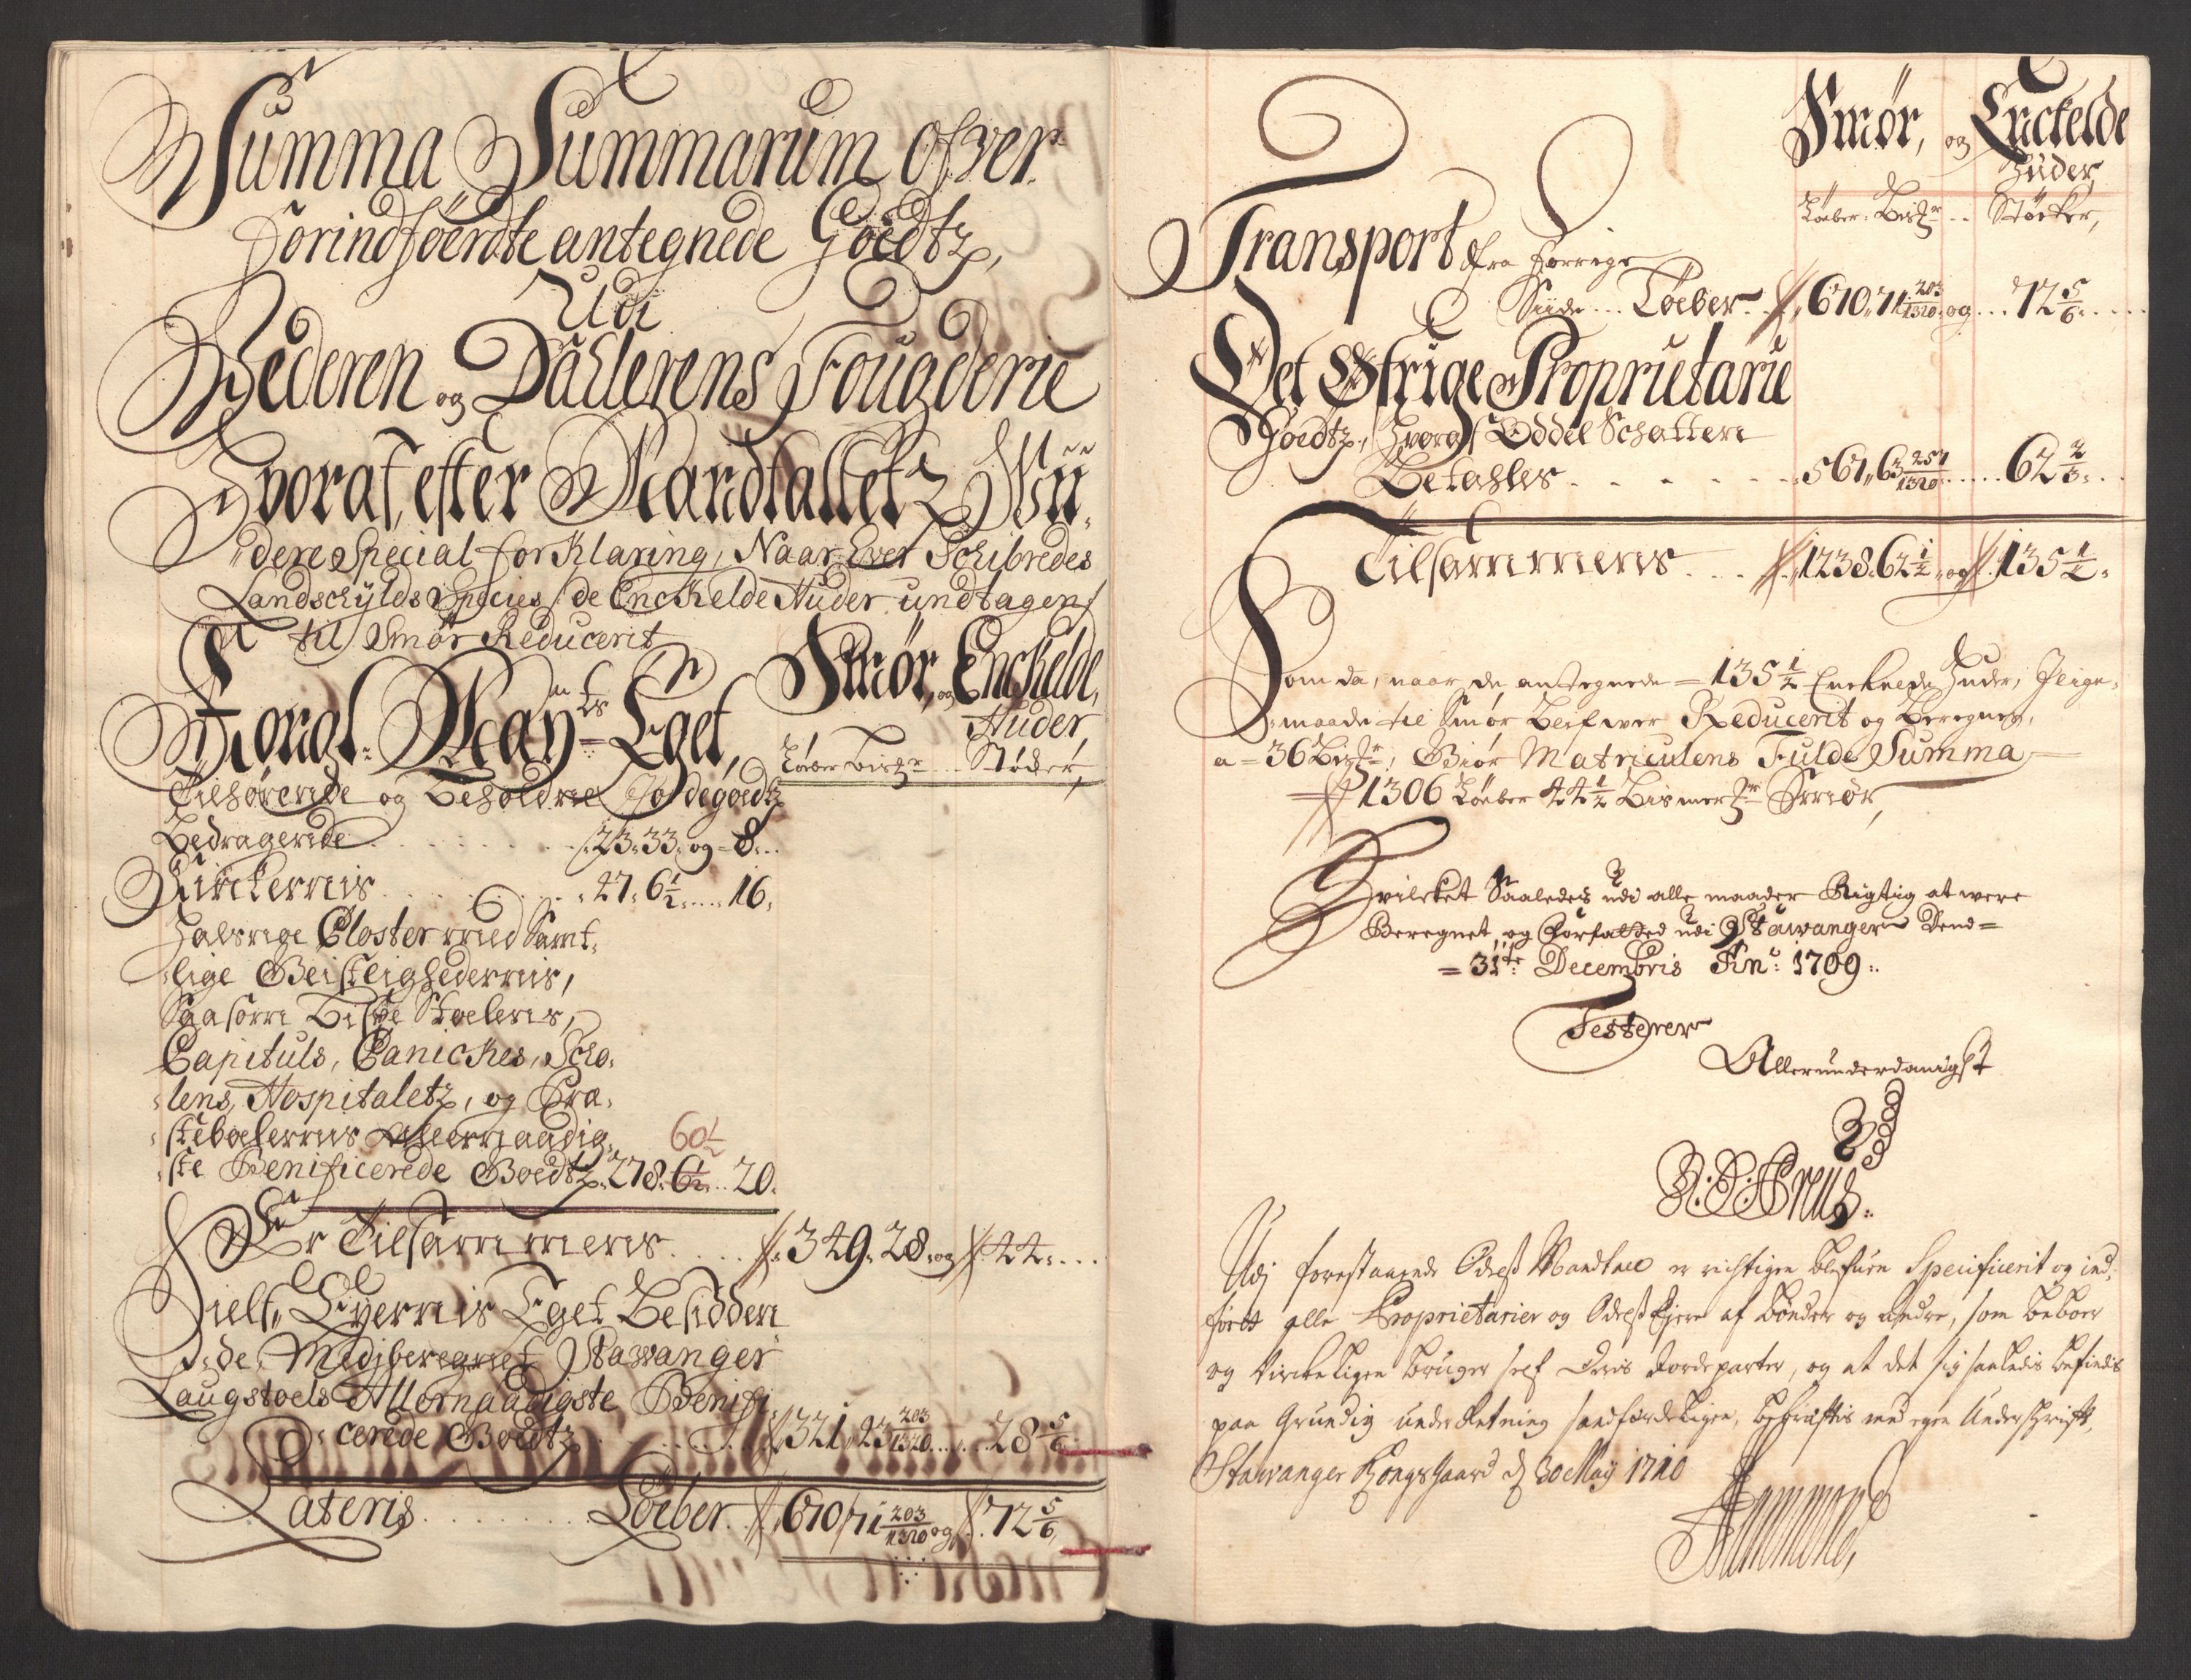 Summa Summarum ofver
forindføerdte antegnede Goedtz,
Udi
Jæderen og Dahlerens Fougderie
Hvoraf, efter Mandtalletz Vii
dere Special forklaring, Naar Ever Schibredes
Landschylds Species /: de Enckelde Huder undtagen /
til Smør Reducerit
Smør, og Enckelde,
Huder
Kongl: May:ts Eget,
Løeber Bismr ... Støcker,
Tilhørende og Beholdne Jordegoedtz
Bedragende . . . 23. 33. og = 8. ..
Kirckernis . . . 27. 6 1/2 .... 16.
Halsnøe Closter med Samt,
lige Geistlighedernis,
Saasom Bispe Stoelens,
Capituls, Canickes, Scho,
lens, Hospitaletz, og Præ,
stebolernis Allernaadig,
60 1/2
ste Benificerede Goedtz. 278. 6 1/2 .. 20.
Er Tilsammens . . . 349. 28. og 44. ...
Sielf Eyernis Eget Besidden
de, Medberegnet Stawanger
Laugstoels Allernaadigste Benifi
cerede Goedtz . . . 321, 43 203/1320 ..... 28 5/6
Lateris . . . . . . Løeber. 670, 71 203/1320 og 72 5/6
Smør, og Enckelde
Huder,
Løeber: Bismr .. Støcker,
Transport fra forrige
Siide ... Løeber 670, 71 203/1320 og ... 72 5/6 ...
Det Øfrige Proprietarie
Goedtz, Hvoraf Oddel Schatten
Betahles . . . . . 567, 63 257/1320 ..... 62 2/3 ..
Tilsammens . . . 1238. 62 1/2, og 135 1/2.
Som da, naar de antegnede = 135 1/2 Enckelde Huder, I lige,
maade til Smør blifwer Reducerit og beregnes,
a = 36 Bismr; Giør Matriculens Fulde Summa
1306 Løeber 44 1/2 Bismer Smør,
Hvilcket Saaledes udi alle maader Rigtig at were
Beregnet, og Forfatted udi Stawanger Dend =
= 31te Decembris Ano: 1709:.
Testerer
Allerunderdanigst
Udj forestaaende Odelß Mandtall er richtigen blefuen Specificerit og ind,
ført alle Proprietarier og Odelß Ejere af bønder og andre, som beboer
og virckeligen bruger self Deris Jordeparter, og at det sig saaledis befindis
paa Grundig under Retning sandfærdeligen, bekræftis med egen Underschrifft,
Stawanger Kongsgaard d 30 Maij 1710
Ammond,